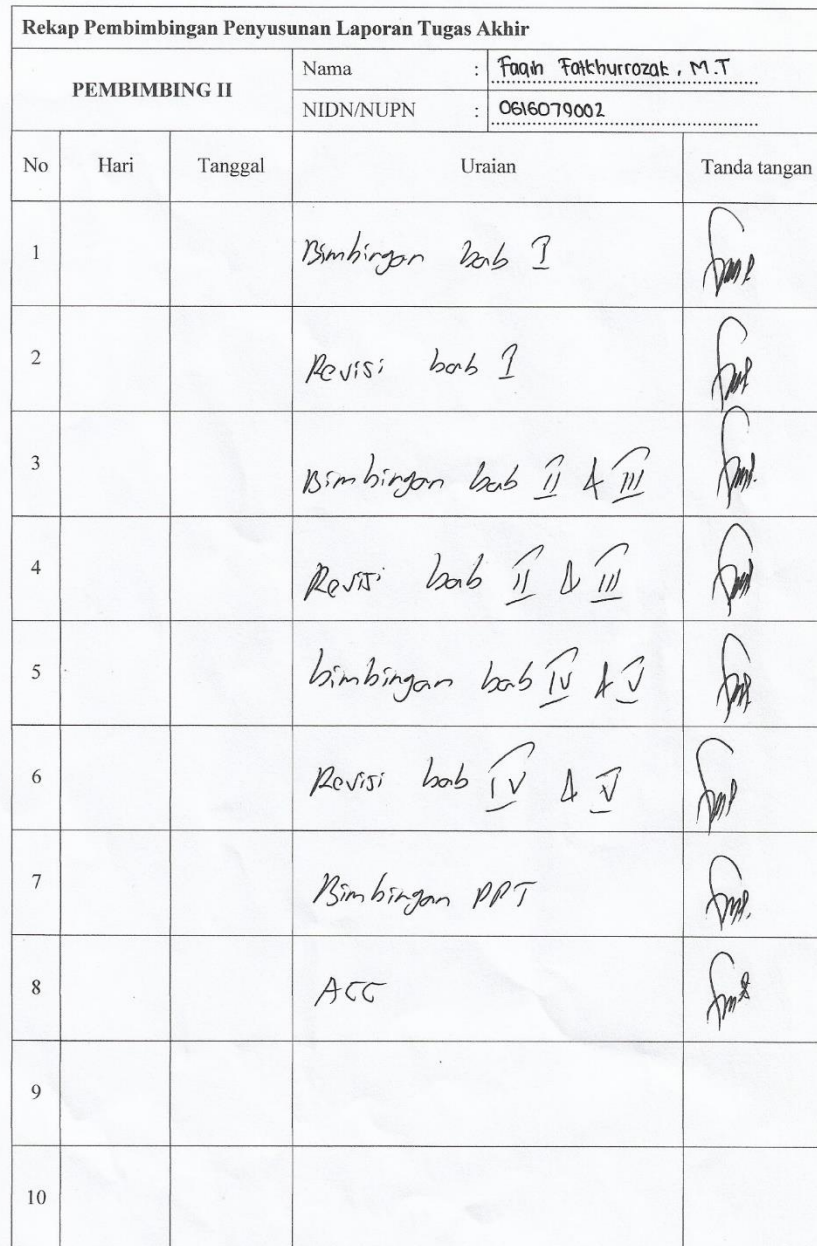 Rekap Pembimbingan Penyusunan Laporan Tugas Akhir
PEMBIMBING II
Nama : Faqih Fatkhurrozak, M.T
NIDN/NUPN : 0616079002
No Hari Tanggal Uraian Tanda tangan
1 Bimbingan bab I
2 Revisi bab I
3 Bimbingan bab II & III
4 Revisi bab II & III
5 bimbingan bab IV & V
6 Revisi bab IV & V
7 Bimbingan PPT
8 ACC
9
10